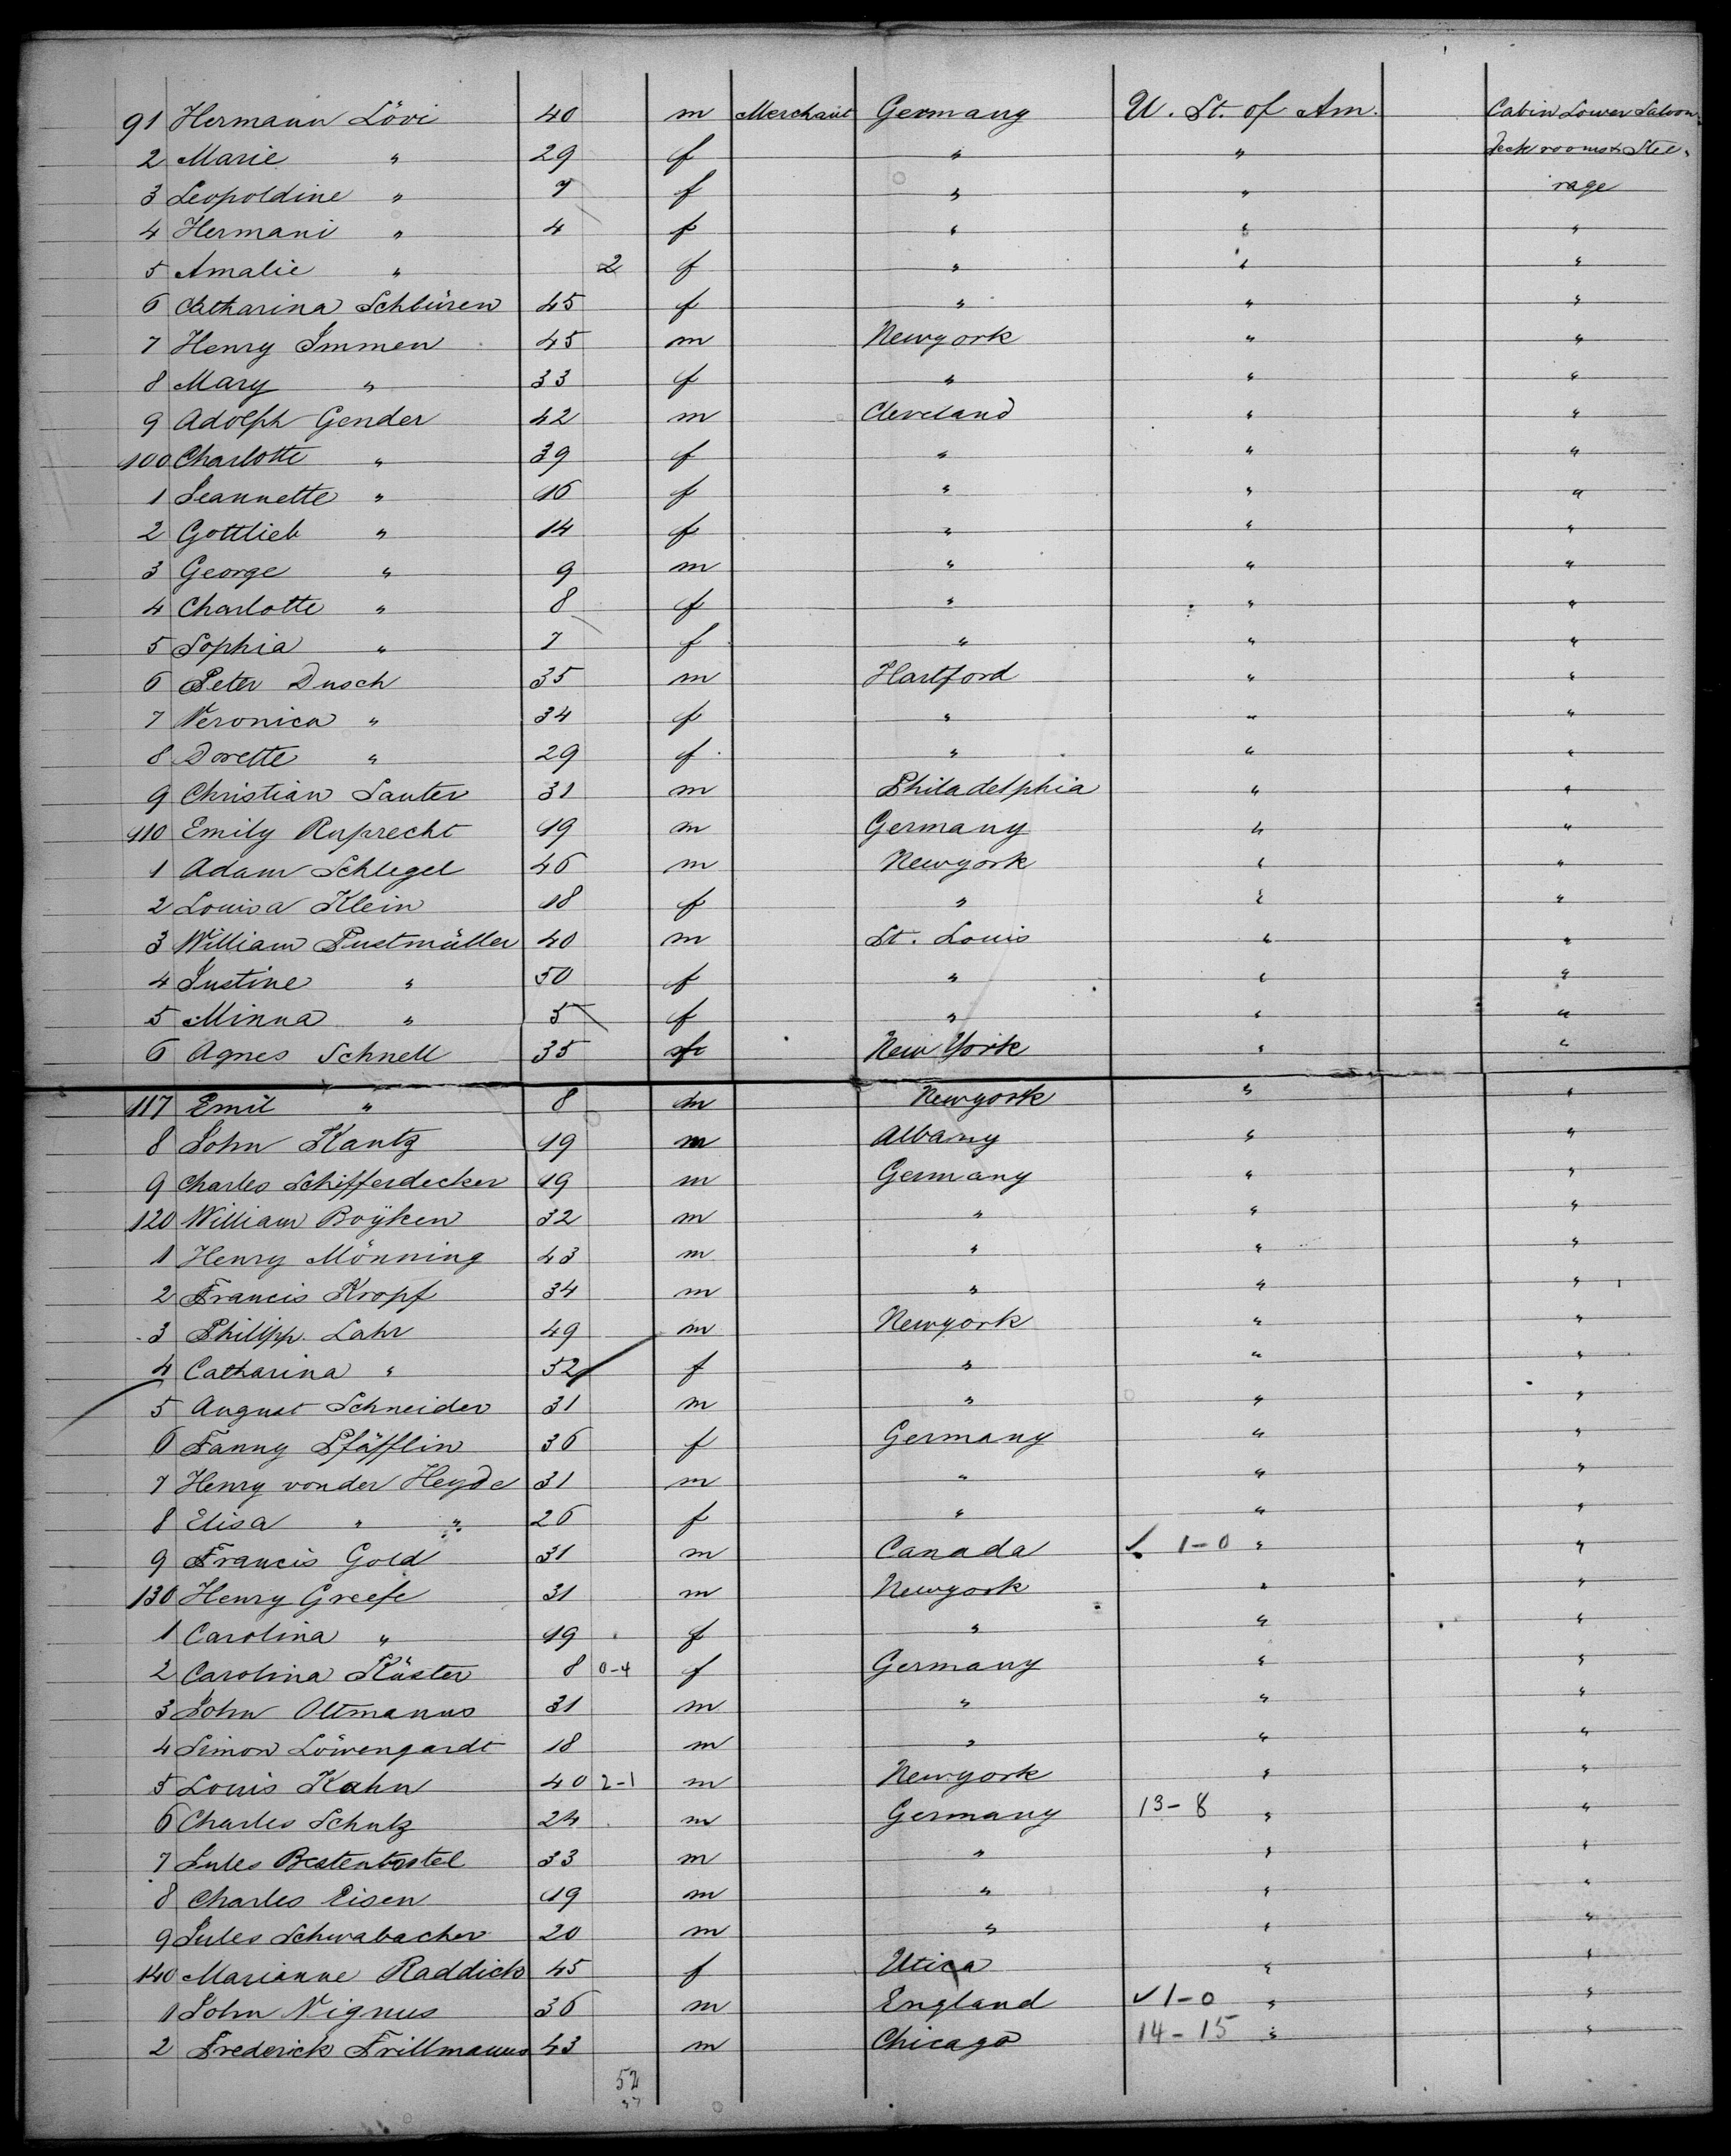 91 Hermann Lövi 40 m Merchant Germany U. St. of Am. Cabin Lower Saloon,
2 Marie " 29 f " " Deck rooms & Stee-
3 Leopoldine " 7 f " " rage
4 Hermani " 4 f " " "
5 Amalie " 2 f " " "
6 Catharina Schbüren 45 f " " "
7 Henry Immen 45 m Newyork " "
8 Mary " 33 f " " "
9 Adolph Gender 42 m Cleveland " "
100 Charlotte " 39 f " " "
1 Jeannette " 16 f " " "
2 Gottlieb " 14 f " " "
3 George " 9 m " " "
4 Charlotte " 8 f " " "
5 Sophia " 7 f " " "
6 Peter Dusch 35 m Hartford " "
7 Veronica " 34 f " " "
8 Dorette " 29 f " " "
9 Christian Sauter 31 m Philadelphia " "
110 Emily Ruprecht 19 m Germany " "
1 Adam Schlegel 46 m Newyork " "
2 Louisa Klein 18 f " " "
3 William Pustmüller 40 m St. Louis " "
4 Justine " 50 f " " "
5 Minna " 5 f " " "
6 Agnes Schnell 35 f New York " "
117 Emil " 8 m Newyork " "
8 John Kautz 19 m Albany " "
9 Charles Schifferdecker 19 m Germany " "
120 William Boÿken 32 m " " "
1 Henry Mönning 43 m " " "
2 Francis Kropf 34 m " " "
3 Philipp Lahr 49 m Newyork " "
4 Catharina " 52 f " " "
5 August Schneider 31 m " " "
6 Fanny Pfäfflin 36 f Germany " "
7 Henry von der Heyde 31 m " " "
8 Elisa " " 26 f " " "
9 Francis Gold 31 m Canada ✓ 1-0 " "
130 Henry Greefe 31 m Newyork " "
1 Carolina " 19 f " " "
2 Carolina Küster 8 0-4 f Germany " "
3 John Oltmanns 31 m " " "
4 Simon Löwengardt 18 m " " "
5 Louis Kahn 40 2-1 m Newyork " "
6 Charles Schulz 24 m Germany 13-8 " "
7 Jules Bestenbostel 33 m " " "
8 Charles Eisen 19 m " " "
9 Jules Schwabacher 20 m " " "
140 Marianne Raddick 45 f Utica " "
1 John Vignus 36 m England ✓ 1-0 " "
2 Frederick Frillmanns 43 m Chicago 14-15 " "
52